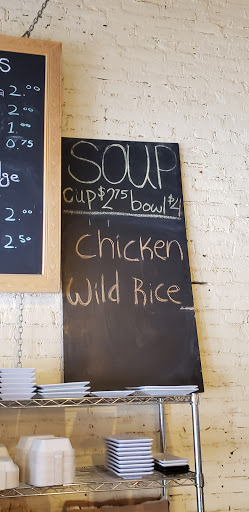 s
a 2.00
2.00
1.00
0.75
dge
2.00
2.50
SOUP
cup $2.75 bowl $4
Chicken
Wild Rice